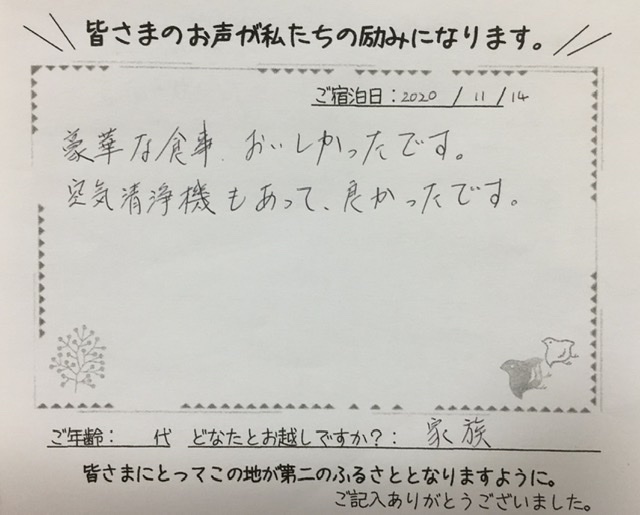 皆さまのお声が私たちの励みになります。
ご宿泊日：2020 / 11 / 14
豪華な食事、おいしかったです。
空気清浄機もあって、良かったです。
ご年齢：　代　どなたとお越しですか？：家族
皆さまにとってこの地が第二のふるさととなりますように。
ご記入ありがとうございました。